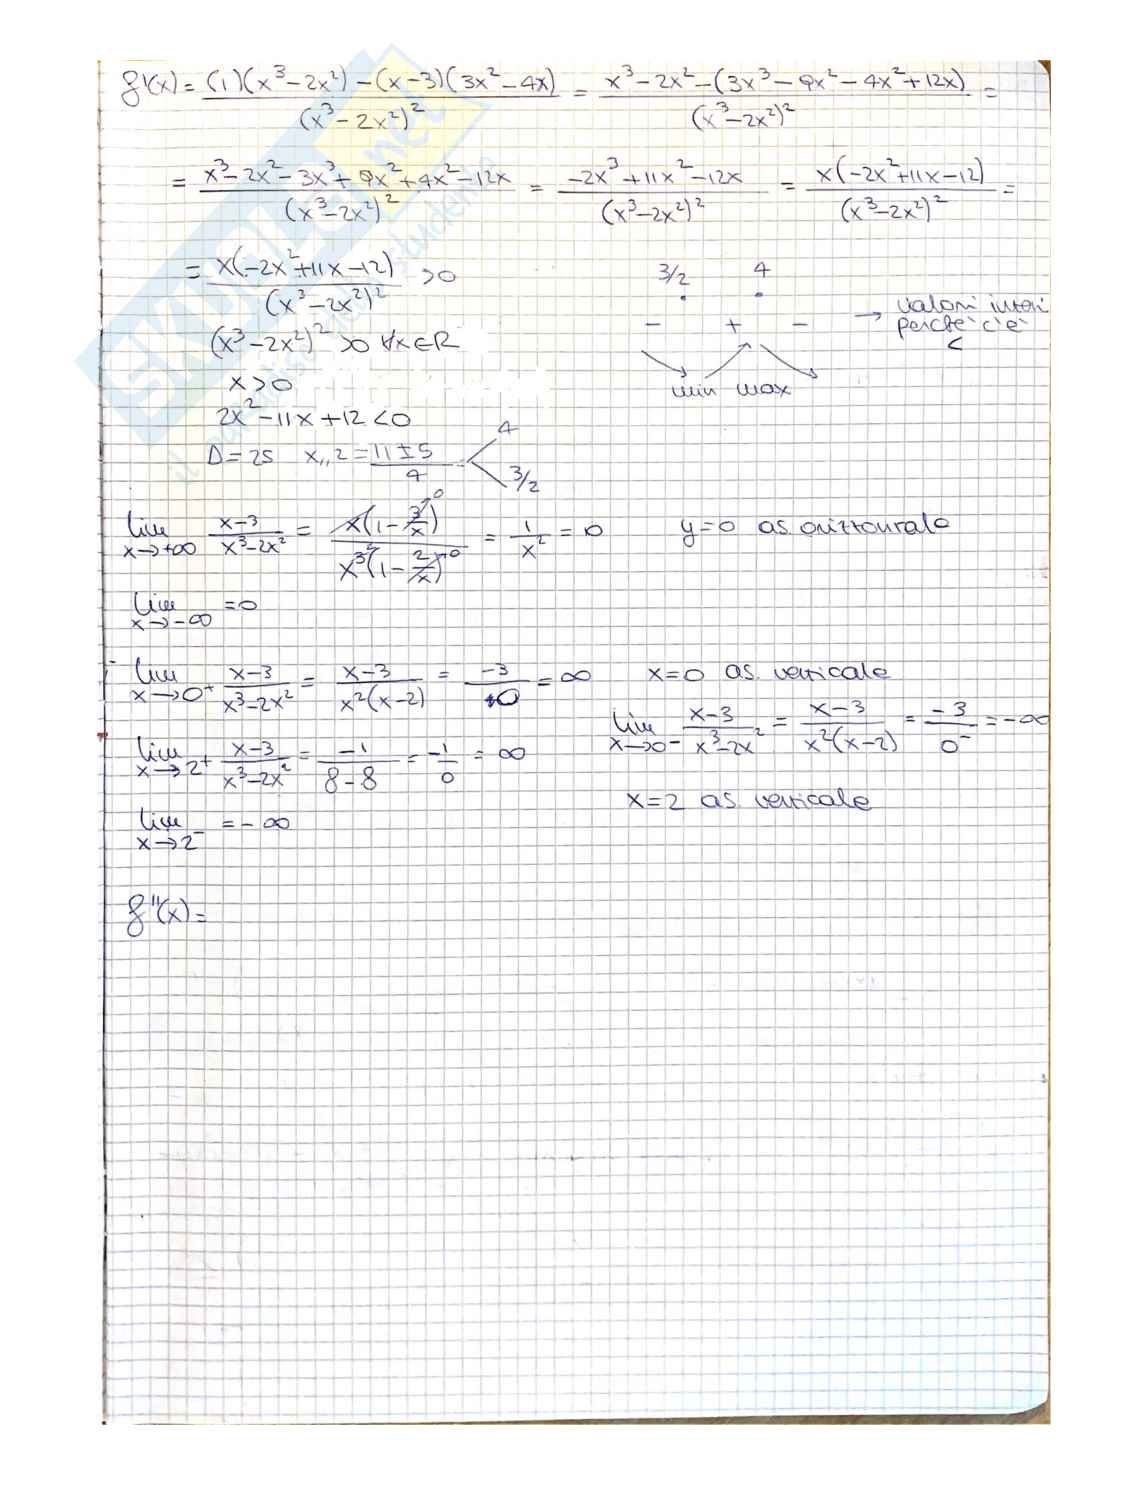 f'(x) = (1)(x³-2x²) - (x-3)(3x²-4x) / (x³-2x²)² = x³-2x²-(3x³-9x²-4x²+12x) / (x³-2x²)² =
= x³-2x²-3x³+9x²+4x²-12x / (x³-2x²)² = -2x³+11x²-12x / (x³-2x²)² = x(-2x²+11x-12) / (x³-2x²)² =
= x(-2x²+11x-12) / (x³-2x²)² >0
(x³-2x²)² >0 ∀x∈R
x>0
2x²-11x+12<0
Δ=25 x₁,₂ = 11±5 / 4 4 3/2
3/2 4
- + -
min max
→ valori interi perché c'è <
lim x→+∞ x-3 / x³-2x² = x(1-3/x)→0 / x³(1-2/x)→0 = 1/x² = 0 y=0 as orizzontale
lim x→-∞ = 0
lim x→0⁺ x-3 / x³-2x² = x-3 / x²(x-2) = -3 / +0 = ∞ x=0 as. verticale
lim x→0⁻ x-3 / x³-2x² = x-3 / x²(x-2) = -3 / 0⁻ = -∞
lim x→2⁺ x-3 / x³-2x² = -1 / 8-8 = -1 / 0 = ∞
x=2 as. verticale
lim x→2⁻ = -∞
f''(x) =
SKUOLA.net
il paradiso dello studente